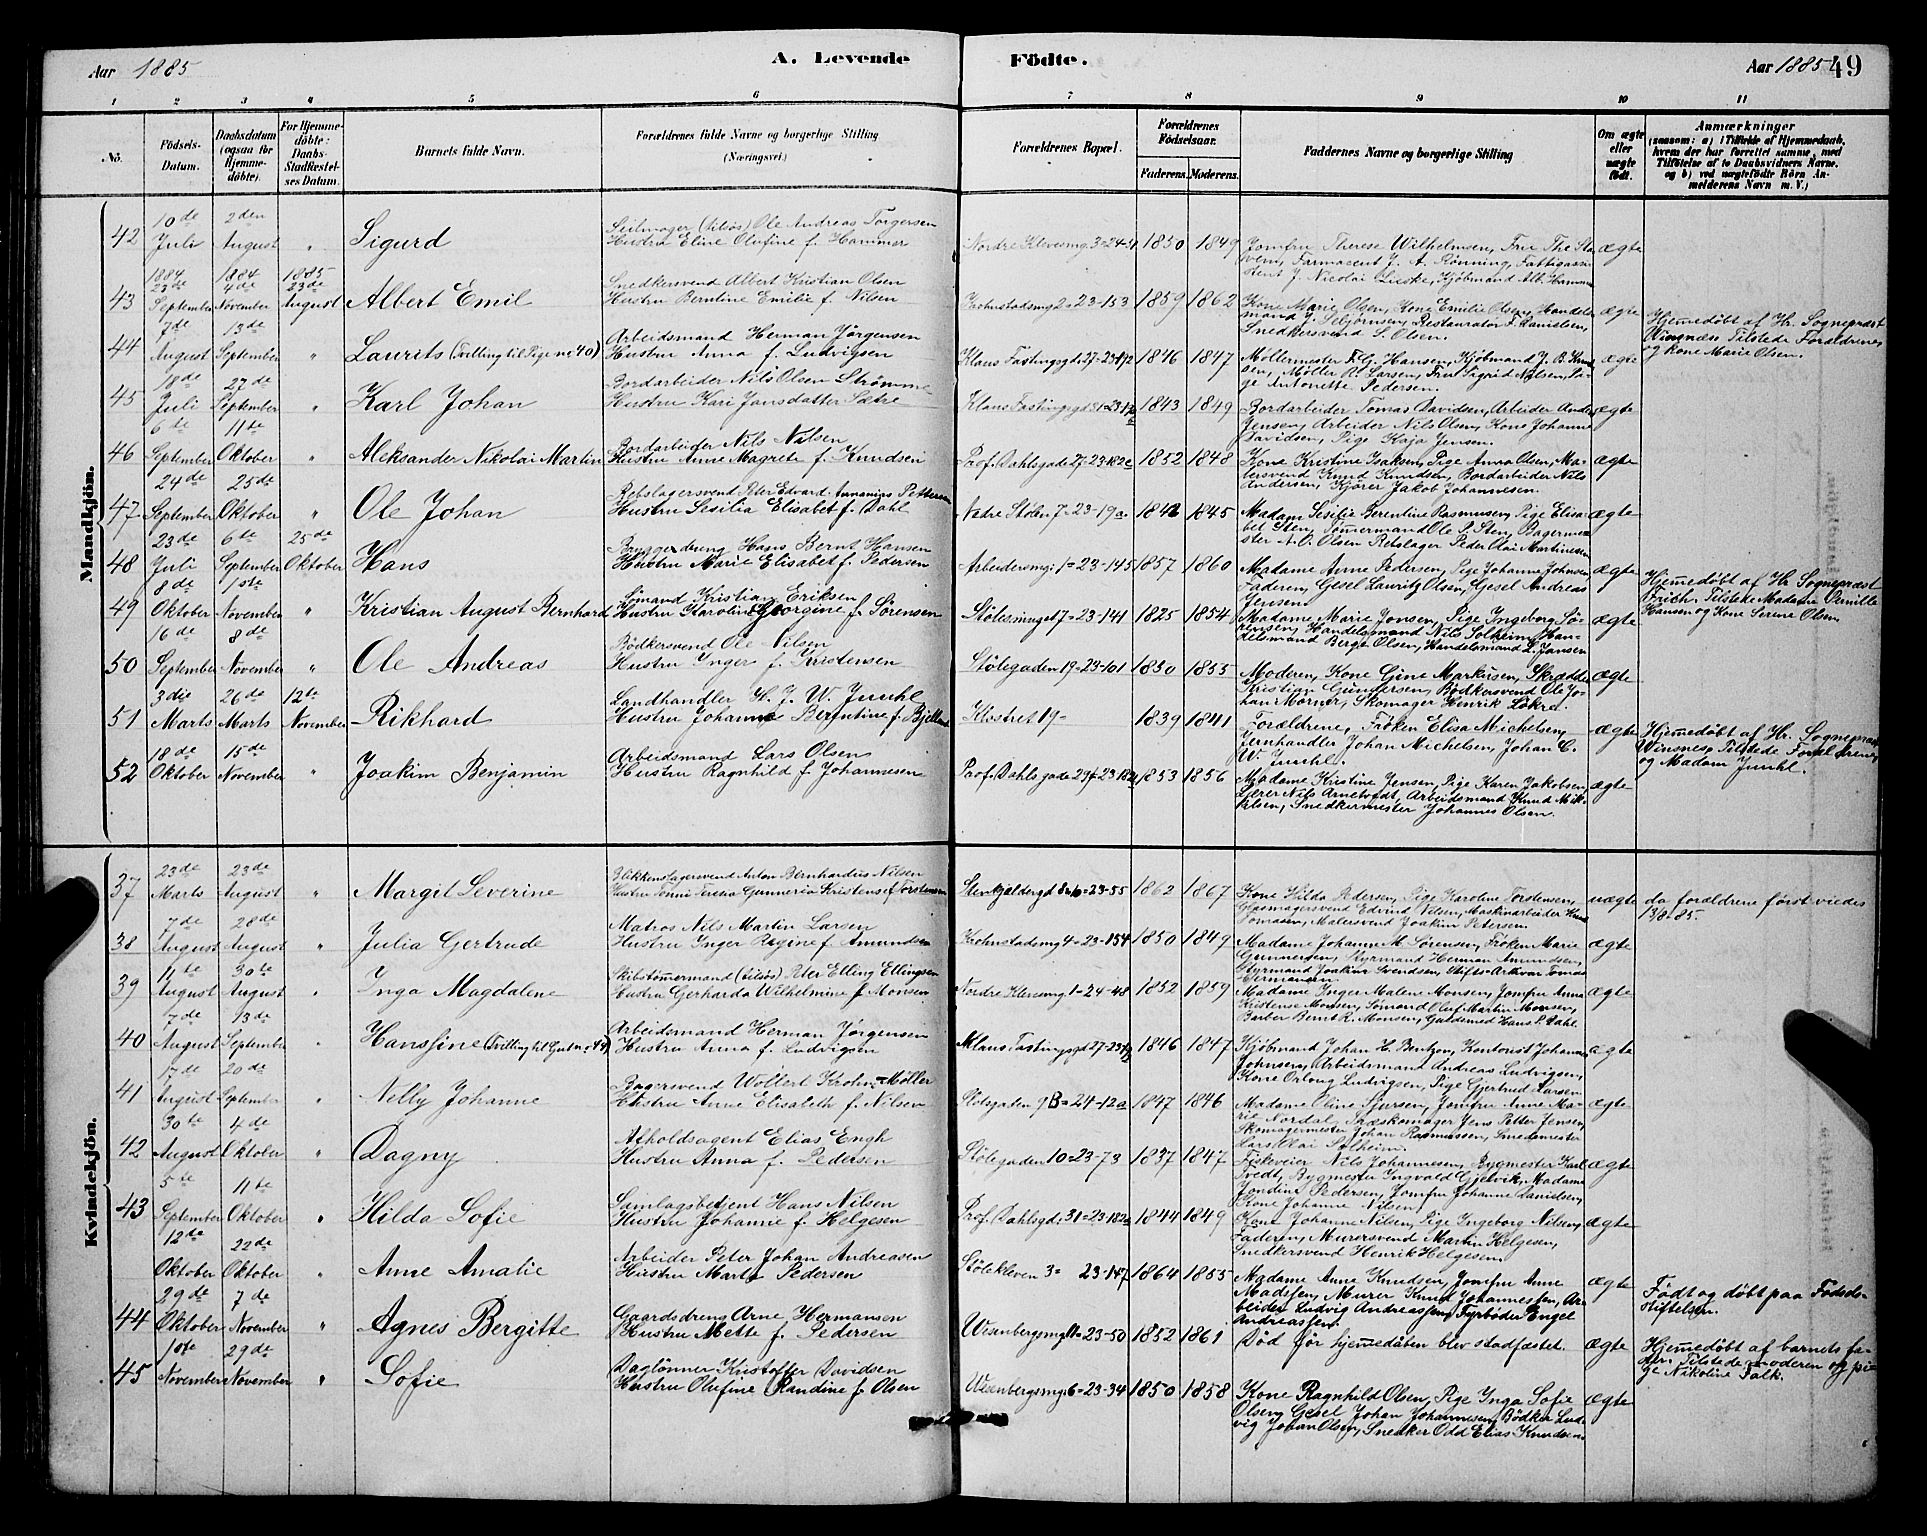 Aar 1885
A. Levende
Födte.
Aar 1885
49
1 2 3 4 5 6 7 8 9 10 11
No.
Födsels-
Datum.
Daabsdatum
(ogsaa for
Hjemme-
döbte).
For Hjemme-
döbte:
Daabs-
Stadfæstel-
ses Datum.
Barnets fulde Navn.
Forældrenes fulde Navne og borgerlige Stilling
(Næringsvei.)
Forældrenes Bopæl.
Forældrenes
Födselsaar.
Faderens. Moderens.
Faddernes Navne og borgerlige Stilling
Om ægte
eller
uægte
födt.
Anmærkninger
(saasom: a) i Tilfælde af Hjemmedaab,
hvem der har forrettet samme, med
Tilföielse af to Daabsvidners Navne,
og b) ved uægtefödte Börn An-
melderens Navn m. V.)
Mandkjön.
42
10de 2den
Juli August " Sigurd
Seilmager (tilsös) Ole Andreas Torgersen
Hustru Eline Olufine f. Hammer
Nordre Klevesmg 3=24-4 1850 1849
Jomfru Therese Wilhelmsen, Frue
Farmaceut J. A. Rönning, Fattigassi
stent J. Nicolai Lieske, Kjöbmand Alb. Hammer
ægte
43
1884 1884 1885
23de 4de 23de
September November August Albert Emil
Snedkersvend Albert Kristian Olsen
Hustru Berntine Emilie f. Nilsen
Krohnstadsmg 2=23-153 1859 1862
Kone Marie Olsen, Kone Emilie Olsen, Handels
mand J. Sebjörnsen, Restauratör F. Danielsen,
Snedkersvend S. Olsen.
ægte
Hjemedöbt af Hr. Sognepræst
Winsnæs. Tilstede Forældrene
og kone Marie Olsen.
44
7de 13de
August September " Laurits (Tvilling til Pige no: 40)
Arbeidsmand Herman Jörgensen
Hustru Anna f. Ludvigsen
Klaus Fastingsgd. 27-23 1846 1847
Möllermester Hansen, Kjöbmand J. B. Knud
sen, Möller Larsen, Frue Sigrid Nilsen, Pi-
ge Antonette Pedersen.
ægte
45
18de 27de
Juli September " Karl Johan
Bordarbeider Nils Olsen Strömme
Hustru Kari Jansdatter Sætre
Klaus Fastingsgd 31=23 1843 1849
Bordarbeider Tomas Davidsen, Arbeider Anders
Jensen, Arbeider Nils Olsen, Kone Johanne
Davidsen, Pige Kaja Jensen.
ægte
46
6te 11te
September Oktober " Aleksander Nikolai Martin
Bordarbeider Nils Nilsen
Hustru Anne Magrete f. Knudsen
Prof. Dahlsgade 27-23-182c 1852 1848
Kone Kristine Isaksen, Pige Anna Olsen, Ma-
lersvend Knud Knudsen, Bordarbeider Nils
Andersen, Kjörer Jakob Johannesen.
ægte
47
24de 25de
September Oktober " Ole Johan
Rebslagersvend Peter Edvard Ammanius Pettersen
Hustru Sesilia Elisabet f. Dahl
Nedre Stölen 7=23-19a 1842 1845
Madam Sesilie Berentine Rasmusen, Pige Elisa-
bet Sten, Tömermand Ole P. Sten, Bagerme-
ster A. O. Olsen Rebslager Peder Olai Martinesen
ægte
48
23de 6te 25de
Juli September Oktober Hans
Bryggerdreng Hans Bernt Hansen
Hustru Marie Elisabet f. Pedersen
Arbeidersmg: 1=23-145 1857 1860
Madame Anne Pedersen, Pige Johanne Johnsen,
Faderen, Gesel Lauritz Olsen, Gesel Andreas
Jensen
ægte
Hjemedöbt af Hr. Sognepræst
Frich. Tilstede Madame Pernille
Hansen og Kone Serene Olsen
49
8de 1ste
Oktober November " Kristian August Bernhard
Sömand Kristian Eriksen
Hustru Karoline Georgine f. Sörensen
Stölesmuget 7=23-141 1825 1854
Madame Marie Jonsen, Pige Ingeborg Sö-
rensen, Handelsmand Nils Solheim, Han-
delsmand Berge Olsen, Handelsmand L. Jansen
ægte
50
16de 8de
September November " Ole Andreas
Bödkersvend Ole Nilsen
Hustru Inger f. Kristensen
Stölegaden 19=23-101 1830 1855
Moderen, Kone Gine Markusen, Skrædder
Kristian Gundersen, Bödkersvend Ole Jo-
han Mörner, Skomager Henrik Lökre.
ægte
51
3die 26de 12te
Marts Marts November Rikhard
Landhandler H. J. W. Juuhl
Hustru Johanne Berntine f. Bjelland
Klostret 19- 1839 1841
Forældrene, Fröken Elisa Michelsen,
Jernhandler Johan Michelsen, Johan C.
W. Juuhl.
ægte
Hjemedöbt af Hr. Sognepræst
Winsnes, Tilstede Forældrene
og Madam Juuhl.
52
18de 15de
Oktober November " Joakim Benjamin
Arbeidsmand Lars Olsen
Hustru Ragnhild f. Johannesen
Prof. Dahls gade 1853 1856
Madame Kristine Jensen, Pige Karen Jakobsen,
Lærer Nils Arnetvedt, Arbeidsmand Knud Mik-
kelsen, Snedkermester Johannes Olsen.
ægte
Kvindekjön.
37
23de 23de
Marts August " Margit Severine
Blikkenslagersvend Anton Bernhardus Nilsen
Hustru Tomine Teresia Gunneria Kristense f Torstensen
Stenkjeldergd 8=23-55 1862 1867
Kone Hilda Pedersen, Pige Karoline Torstensen,
Glasmagersvend Edvind Nilsen, Maskinarbeider Knud
Tomasen, Malersvend Joakim Petersen.
uægte
da forældrene först viedes
13/8-85.
38
7de 28de
August August " Julia Gertrude
Matros Nils Martin Larsen
Hustru Inger Regine f. Amundsen
Krohnstadsmg 4=23-154 1850 1849
Madame Johanne M. Sörensen, Fröken Marie
Gunnersen, Styrmand Herman Amundsen,
Styrmand Joakim Svendsen, Stifts-Arkivar Tomas
Hermansen
ægte
39
11te 30te
August August " Inga Magdalene
Skibstömermand (tilsös) Peter Elling Ellingsen
Hustru Gerharda Wilhelmine f. Monsen
Nordre Klevesmg 1=24-48 1852 1859
Madame Inger Malene Monsen, Jomfru Anna
Kristense Monsen, Sömand Oluf Martin Monsen,
Barber Bernt R. Monsen, Guldsmed Hans P. Dahl.
ægte
40
7de 13de
August September " Hansine (Tvilling til Gut no: 44)
Arbeidsmand Herman Jörgensen
Hustru Anna f. Ludvigsen
Klaus Fastingsgd 27-23 1846 1847
Kjöbmand Johan H. Bentzon, Kontorist Johannes
Johnsen, Arbeidsmand Andreas Ludvigsen,
Kone Ludvigsen, Pige Gjertrud Larsen
ægte
41
17de 20de
August September " Nelly Johanne
Bagersvend Wollert Krohn-Möller
Hustru Anne Elisabeth f. Nilsen
Stölegaden 9B=24-12a 1847 1846
Madame Oline Sjursen, Jomfru Anne Ma-
rie Nordal, Træskomager Jens Petter Jensen,
Skomagermester Johan Rasmussen, Smedemester
Lars Olai Solheim.
ægte
42
30te 4de
August Oktober " Dagny
Afholdsagent Elias Engh
Hustru Anna f. Pedersen
Stölegaden 10=23-73 1837 1847
Fiskeveier Nils Johannesen, Bygmester Karl
Tvedt, Bygmester Ingvald Gjelvik, Madame
Jondine Pedersen, Jomfru Johanne Davidsen,
Kone Johanne Nilsen
ægte
43
5te 11te
September Oktober " Hilda Sofie
Samlagsbetjent Hans Nilsen
Hustru Johanne f. Helgesen
Prof. Dahlsgd: 31=23-182a 1844 1849
Kone Johanne Nilsen, Pige Ingeborg Nilsen,
Faderen, Murersvend Martin Helgesen,
Snedkersvend Henrik Helgesen
ægte
12de 22de
Oktober Oktober " Anne Amalie
Arbeider Peter Johan Andreasen
Hustru Marta Pedersen
Stölekleven 3= 23-147 1864 1855
Madame Anne Knudsen, Jomfru Anne
Madsen, Murer Knud Johannessen, Ar-
beider Ludvig Andreassen, Fyrböder Engel
Andreassen.
ægte
Födt og döbt paa Födsels-
stiftelsen.
44
29de 7de
Oktober November " Agnes Bergitte
Gaardsdreng Arne Hermansen
Hustru Mette f. Pedersen
Wesenbergsmg 11=23-50 1852 1861
Död för hjemedåben blev stadfæstet.
ægte
Hjemedöbt af barnets fa-
der. Tilstede moderen og pi-
ge Nikoline Falk.
45
1ste 29de
November November " Sofie
Daglönner Kristoffer Davidsen
Hustru Olufine Randine f. Olsen
Wesenbergsmg 6=23-34 1850 1858
Kone Ragnhild Olsen, Pige Inga Sofie
Olsen, Gesel Johan Johannesen, Bödker Lud-
vig Johan Olsen, Snedker Odd Elias Knudsen.
ægte